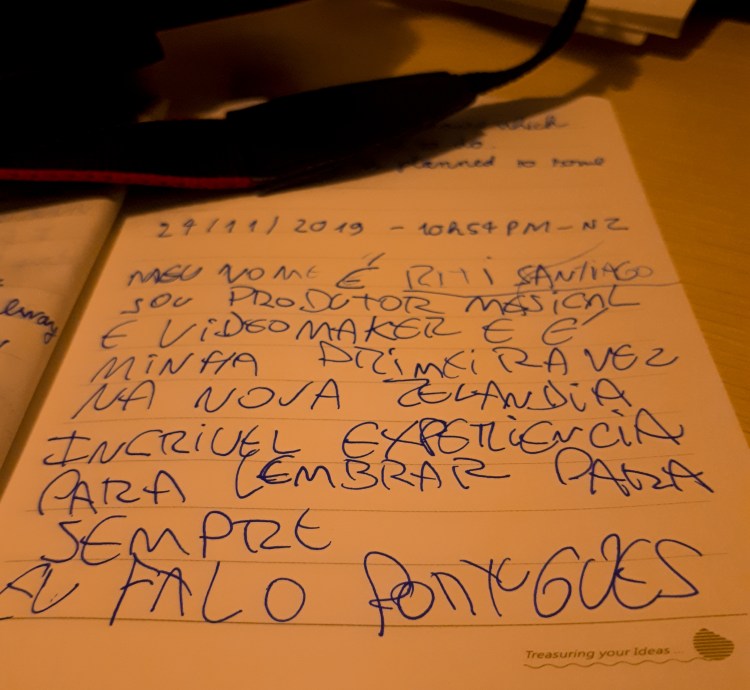 which
planned to some
away
24/11/2019 - 10h54PM - NZ
MEU NOME É SANTIAGO
SOU PRODUTOR MUSICAL
E VIDEOMAKER E É
MINHA PRIMEIRA VEZ
NA NOVA ZELANDIA
INCRIVEL EXPERIENCIA
PARA LEMBRAR PARA
SEMPRE
EU FALO PORTUGUES
Treasuring your Ideas...